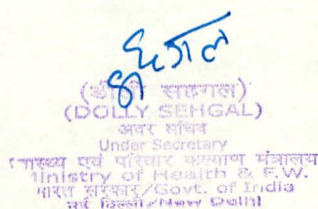 (डॉली सहगल)
(DOLLY SEHGAL)
अवर सचिव
Under Secretary
स्वास्थ्य एवं परिवार कल्याण मंत्रालय
Ministry of Health & F.W.
भारत सरकार/Govt. of India
नई दिल्ली/New Delhi